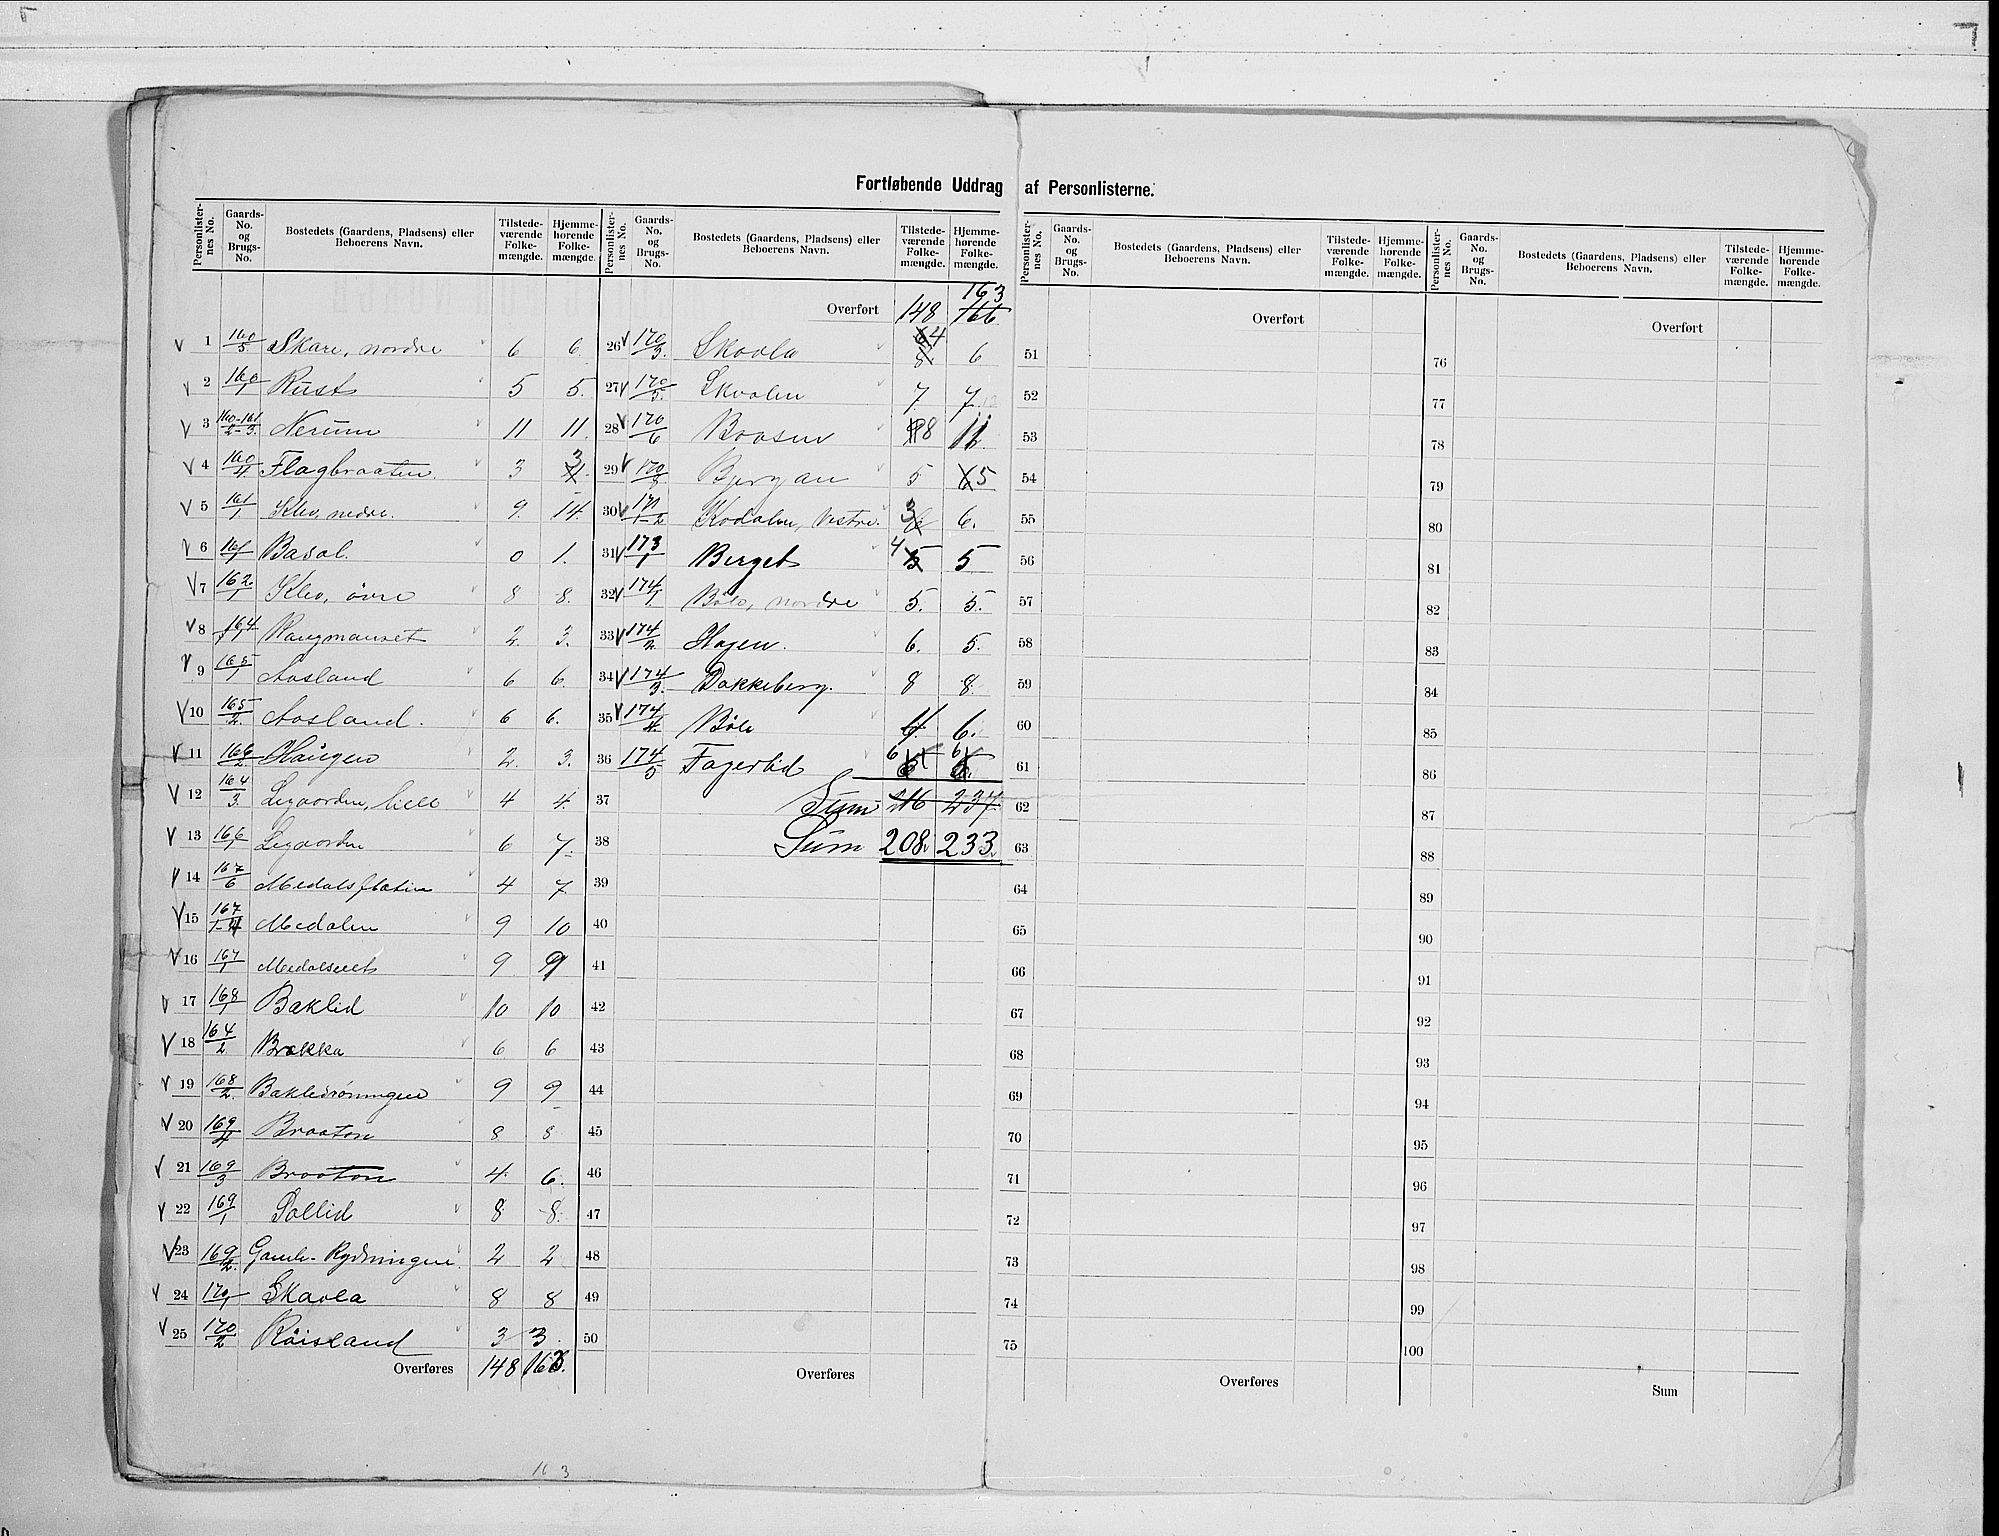 Fortløbende Uddrag af Personlisterne.
Personlister-nes No. | Gaards-No. og Brugs-No. | Bostedets (Gaardens, Pladsens) eller Beboerens Navn. | Tilstede-værende Folke-mængde. | Hjemme-hørende Folke-mængde.
1 160/5. Skare, nordre 6 6.
2 160/1 Rust 5 5.
3 160-161/2-3. Nerum 11 11.
4 160/4 Flagbraaten. 3 3
5 161/1. Klev, nedre. 9. 14.
6 161/1 Basal. 0 1.
7 162/1 Klev, övre 8 8.
8 164/1 2. 3.
9 165/1 Aasland 6 6.
10 165/2. Aasland. 6 6.
11 166/2 Haugen 2. 3.
12 164/3. Legaarden, lille 4 4.
13 166/1 Legaarden 6 7.
14 167/6 Medalsflatin 4 7.
15 167/1-4 Medalen 9 10
16 167/1 Medalseet 9 9
17 168/1 Baklid 10 10
18 164/2 Brækka 6 6
19 168/2. Baklidröningen 9 9
20 169/4 Braaton 8 8
21 169/3 Braaton 4. 6.
22 169/1 Sollid 8 8.
23 169/2. Gamle-Rydningen. 2 2
24 170/1 Skavla 8 8
25 170/2 Röisland 3 3
Overføres 148 163.
Personlister-nes No. | Gaards-No. og Brugs-No. | Bostedets (Gaardens, Pladsens) eller Beboerens Navn. | Tilstede-værende Folke-mængde. | Hjemme-hørende Folke-mængde.
Overført 148 163 166
26 170/3. Skavla 4 6
27 170/5. Skaalen 7. 7.
28 170/6 Braasen 8 11
29 170/8 Bjergan 5 5
30 171/1-2 Kodalen, vestre. 3 6.
31 173/1 Berget 4 5 5.
32 174/1 Böle, nordre 5. 5.
33 174/2. Hagen. 6. 5.
34 174/3. Dokkeberg. 8 8.
35 174/4. Böle 4. 6.
36 174/5 Fagerlid 6 6
37 Sum 216 237.
38 Sum 208. 233.
39
40
41
42
43
44
45
46
47
48
49
50
Overføres
Personlister-nes No. | Gaards-No. og Brugs-No. | Bostedets (Gaardens, Pladsens) eller Beboerens Navn. | Tilstede-værende Folke-mængde. | Hjemme-hørende Folke-mængde.
Overført
51
52
53
54
55
56
57
58
59
60
61
62
63
64
65
66
67
68
69
70
71
72
73
74
75
Overføres
Personlister-nes No. | Gaards-No. og Brugs-No. | Bostedets (Gaardens, Pladsens) eller Beboerens Navn. | Tilstede-værende Folke-mængde. | Hjemme-hørende Folke-mængde.
Overført
76
77
78
79
80
81
82
83
84
85
86
87
88
89
90
91
92
93
94
95
96
97
98
99
100
Sum
163